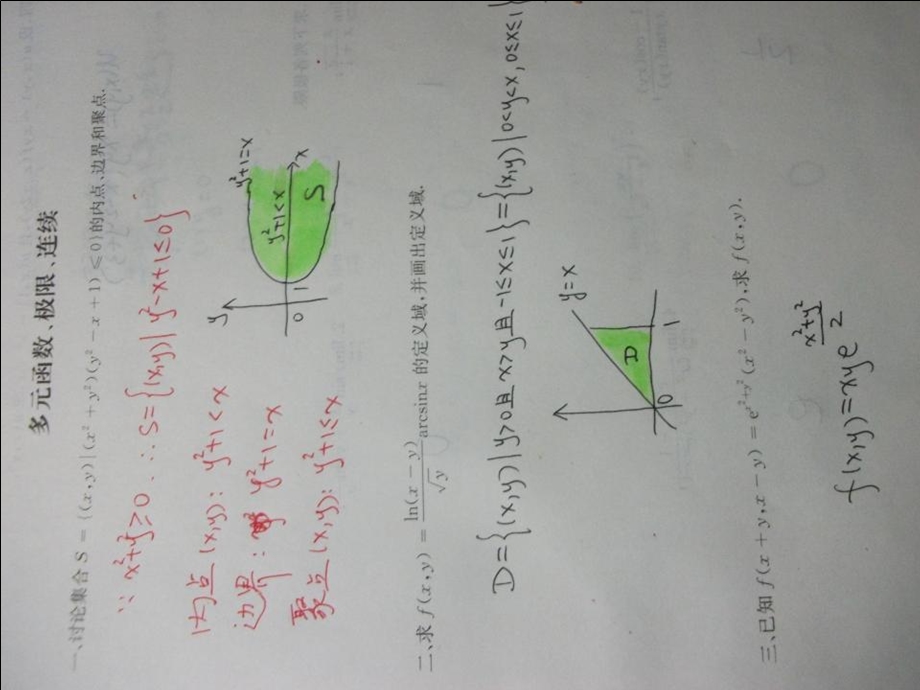 多元函数、极限、连续
一、讨论集合 S = {(x,y)|(x²+y²)(y²-x+1)≤0}的内点、边界和聚点.
∵ x²+y²≥0 ∴ S={(x,y)| y²-x+1≤0}
内点 (x,y): y²+1<x
边界: y²+1=x
聚点 (x,y): y²+1≤x
y
y²+1=x
y²+1<x
x
S
0 1
二、求 f(x,y) = \frac{ln(x-y)}{√y} arcsinx 的定义域,并画出定义域.
D={(x,y)|y>0且x>y且-1≤x≤1}={(x,y)|0<y<x,0≤x≤1
y=x
D
0 1
三、已知 f(x+y,x-y) = e^{x²+y²}(x²-y²),求 f(x,y).
f(x,y)=xye^{\frac{x²+y²}{2}}